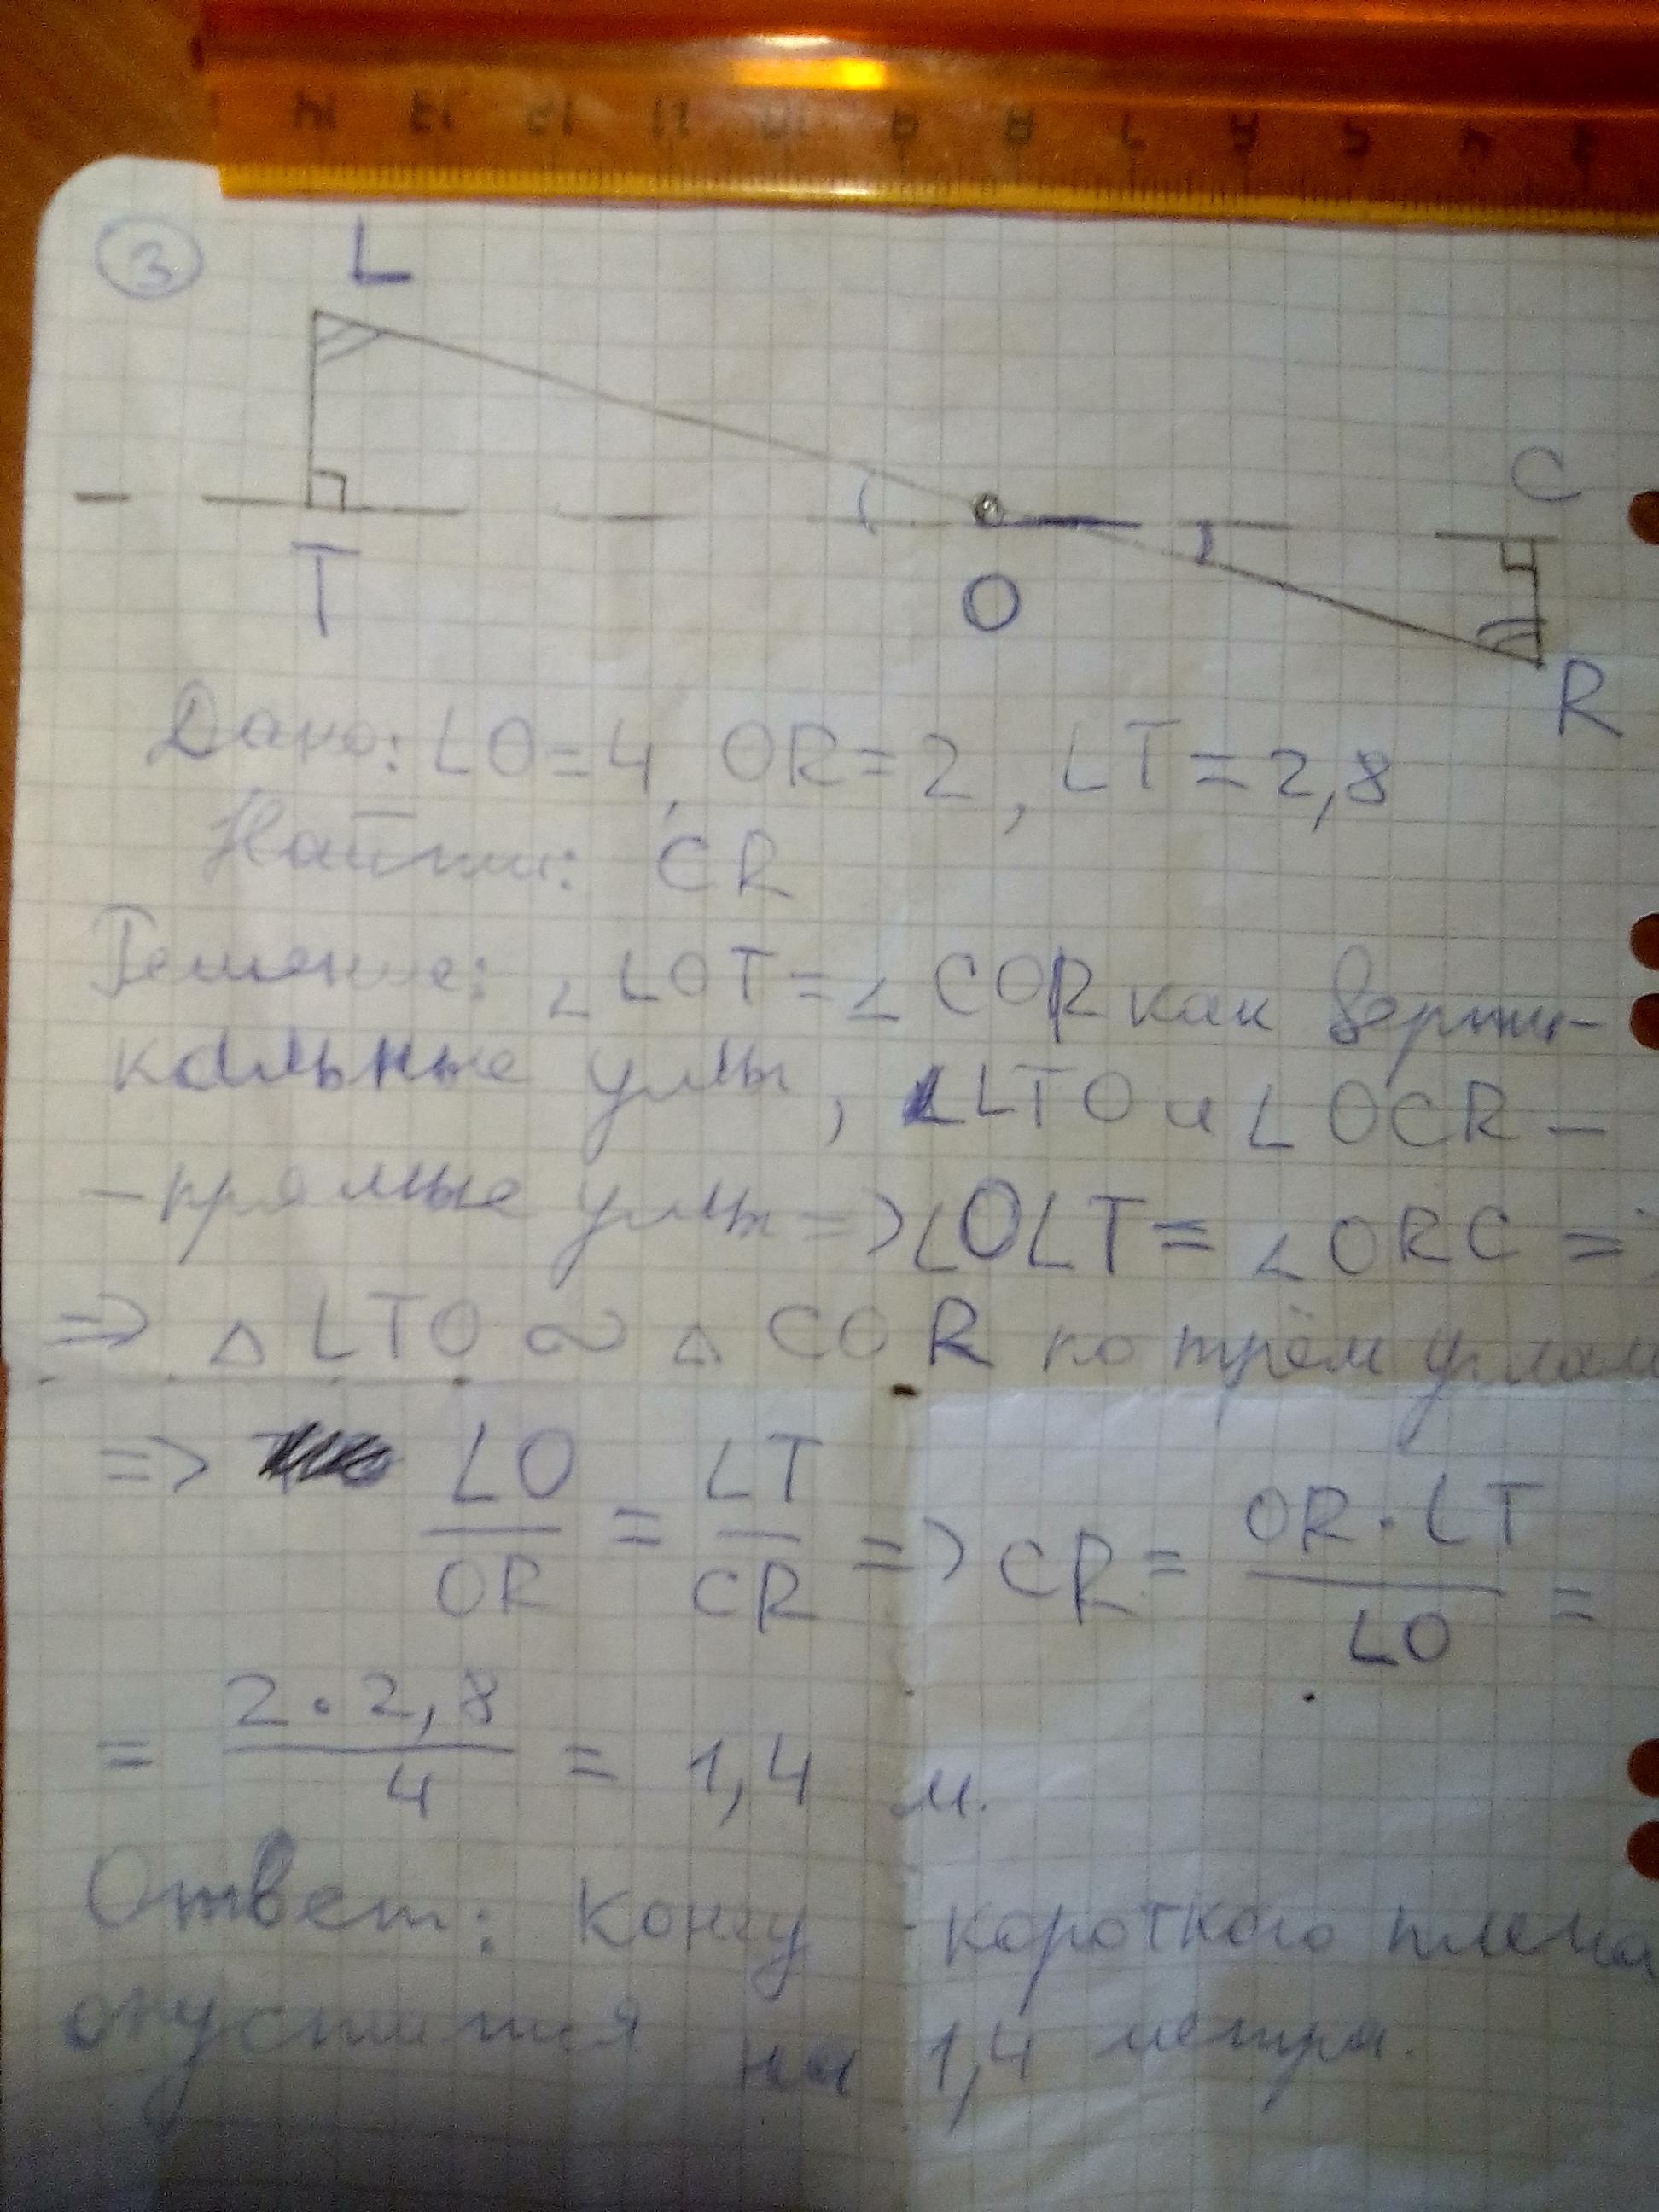 14 13 12 11 10 9 8 7 6 5 4 3
3
L
C
T
O
R
Дано: LO=4, OR=2, LT=2,8
Найти: CR
Решение: ∠LOT=∠COR как верти-
кальные углы, ∠LTO и ∠OCR –
– прямые углы => ∠OLT = ∠ORC =>
=> △LTO ∾ △COR по трём углам
=> LO/OR = LT/CR => CR = OR·LT/LO =
= 2·2,8/4 = 1,4 м.
Ответ: Конец короткого плеча
опустится на 1,4 метра.